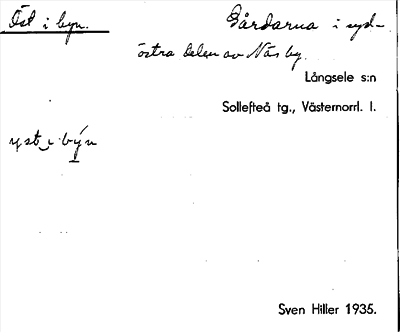 Öst i byn. Gårdarna i syd-
östra delen av Näs by.
Långsele s:n
Sollefteå tg., Västernorrl. l.
yst i býn
Sven Hiller 1935.